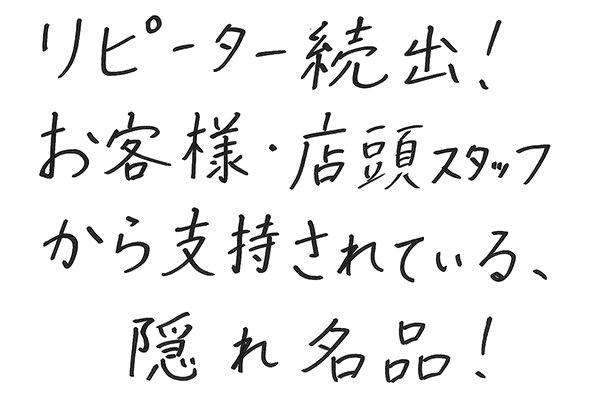 リピーター続出!
お客様・店頭スタッフ
から支持されている、
隠れ名品!